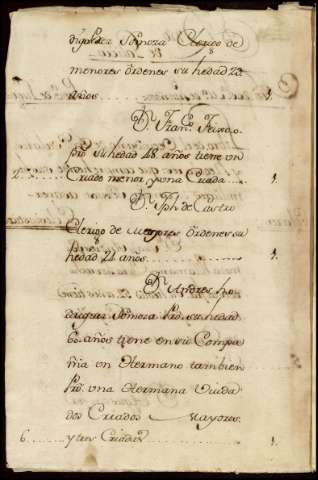 driguez Somoza Clerigo de
menores Ordenes su hedad 23
años . . . . . . . . . . . . . . . 1.
Dn. Franco. Feixoo
Pro. su hedad 48 años tiene un
2. Criado menor y una Criada . . . 1.
Dn. Jph. de Castro
Clerigo de menores Ordenes su
hedad 21 anos . . . . . . . . . . 1.
Dn. Andres Ro
driguez Somoza Pro. su hedad
60 años tiene en su Compa
ñia un Hermano tambien
Pro. una Hermana Viuda
dos Criados Mayores
6 . . . y tres Criadas . . . . . . 1.